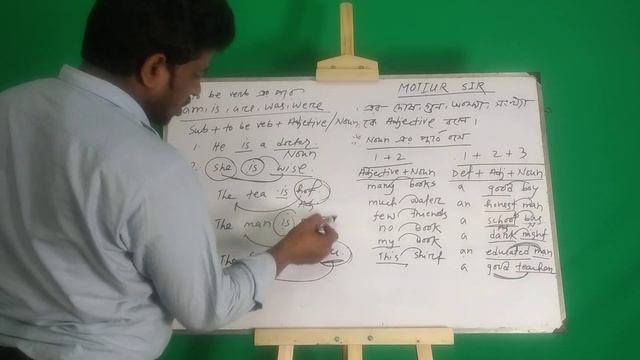 MOTIUR SIR
to be verb এর পরে
am, is, are, was, were
Sub + to be verb + Adjective / Noun
1. He is a doctor.
Noun
2. She is wise.
The tea is hot
Adj
The man is
The
এর দোষ, গুন, অবস্থা, সংখ্যা
কে Adjective বলে।
Noun এর পূর্বে বসে
1 + 2
Adjective + Noun
many books
much water
few friends
no book
my book
This shirt
1 + 2 + 3
Det + Adj + Noun
a good boy
an honest man
a school bus
Adj N
a dark night
an educated man
a good teacher